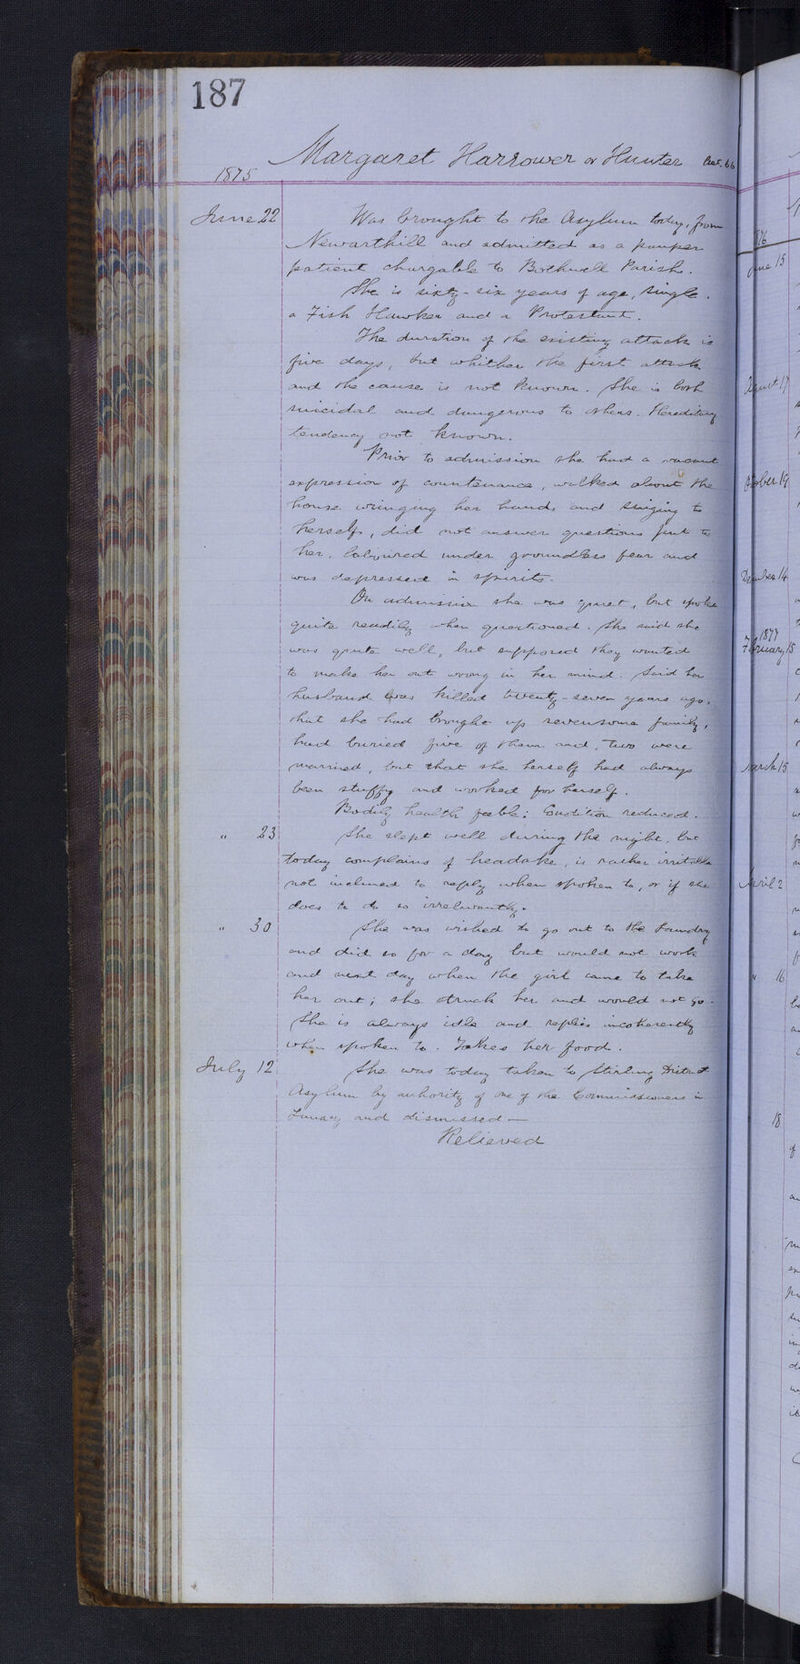 187
Margaret Harrower or Hunter Aet. 66
1875
June 22 Was brought to the Asylum today, from
Newarthill and admitted as a pauper
patient chargable to Bothwell Parish.
She is sixty-six years of age, single.
a Fish Hawker and a Protestant.
The duration of the existing attack is
five days, but whither the first attack
and the cause is not known. She is both
suicidal and dangerous to others. Hereditary
tendency not known.
Prior to admission she had a vacant
expression of countenance, walked about the
house wringing her hands and singing to
herself, did not answer questions put to
her, laboured under groundless fear and
was depressed in spirits.
On admission she was quiet, but spoke
quite readily when questioned. She said she
was quite well, but supposed they wanted
to make her out wrong in her mind. Said her
husband was killed twenty-seven years ago,
that she had brought up sevensome family,
had buried five of them and, two were
married, but that she herself had always
been stuffy and worked for herself.
Bodily health feeble; Condition reduced.
" 23 She slept well during the night, but
today complains of headake, is rather irritable
not inclined to reply when spoken to, or if she
does to do so irrelevantly.
" 30 She was wished to go out to the Laundry
and did so for a day but would not work
and next day when the girl came to take
her out; she struck her and would not go.
She is always idle and replies incoherently
when spoken to. Takes her food.
July 12 She was today taken to Stirling District
Asylum by authority of one of the Commissioners in
Lunacy and dismissed—
Relieved
June 15
August 17
October 19
December 14
1877
February 15
March 15
April 2
" 16
18